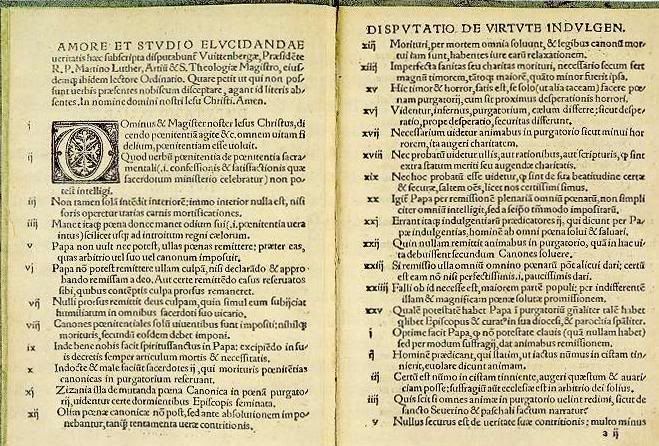 AMORE ET STVDIO ELVCIDANDAE
ueritatis hæc subscripta disputabunť Vuittenbergæ, Præsidēte
R. P. Martino Luther, Artiū & S. Theologiæ Magistro, eius-
dem ibidem lectore Ordinario. Quare petit ut qui non pos-
sunt uerbis præsentes nobiscum disceptare, agant id literis ab-
sentes. In nomine domini nostri Iesu Christi. Amen.
i Ominus & Magister noster Iesus Christus, di-
cendo pœnitentiā agite &c, omnem uitam fi
delium, pœnitentiam esse uoluit.
ij Quod uerbū pœnitentia de pœnitentia sacra-
mentali (.i. confessiōis & satisfactionis quæ
sacerdotum ministerio celebratur) non po-
test intelligi.
iij Non tamen solā intēdit interiorē; immo interior nulla est, nisi
foris operetur uarias carnis mortificationes.
iiij Manet itaq; pœna donec manet odium sui (.i. pœnitentia uera
intus) scilicet usq; ad introitum regni cælorum.
v Papa non uult nec potest, ullas pœnas remittere; præter eas,
quas arbitrio uel suo uel canonum imposuit.
vj Papa nō potest remittere ullam culpā, nisi declarādo & appro-
bando remissam a deo. Aut certe remittēdo casus reseruatos
sibi, quibus contēptis culpa prorsus remaneret.
vij Nulli prorsus remittit deus culpam, quin simul eum subijciat
humiliatum in omnibus sacerdoti suo uicario.
viij Canones pœnitentiales solū uiuentibus sunt impositi; nihilq;
morituris, secundū eosdem debet imponi.
ix Inde bene nobis facit spiritussanctus in Papa; excipiēdo in su-
is decretis semper articulum mortis & necessitatis.
x Indocte & male faciūt sacerdotes ij, qui morituris pœnitētias
canonicas in purgatorium reseruant.
xj Zizania illa de mutanda pœna Canonica in pœnā purgato-
rij, uidentur certe dormientibus Episcopis seminata.
xij Olim pœnæ canonicæ nō post, sed ante absolutionem impo-
nebantur, tanq̄ tentamenta ueræ contritionis.
DISPVTATIO DE VIRTVTE INDVLGEN.
xiij Morituri, per mortem omnia soluunt, & legibus canonū mor-
tui iam sunt, habentes iure earū relaxationem.
xiiij Imperfecta sanitas seu charitas morituri, necessario secum fert
magnū timorem, tātoq; maiorē, quāto minor fuerit ipsa.
xv Hic timor & horror, satis est, se solo (ut alia taceam) facere pœ-
nam purgatorij, cum sit proximus desperationis horrori.
xvj Videntur, infernus, purgatorium, cælum differre; sicut despe-
ratio, prope desperatio, securitas differunt.
xvij Necessarium uidetur animabus in purgatorio sicut minui hor-
rorem, ita augeri charitatem.
xviij Nec probatū uidetur ullis, aut rationibus, aut scripturis, q̄ sint
extra statum meriti seu augendæ charitatis.
xix Nec hoc probatū esse uidetur, q̄ sint de sua beatitudine certæ
& securæ, saltem oēs, licet nos certissimi simus.
xx Igiť Papa per remissionē plenariā omniū pœnarū, non simpli
citer omniū intelligit, sed a seipso tīmmodo impositarū.
xxj Errant itaq; indulgentiarū prædicatores ij, qui dicunt per Pa-
pæ indulgentias, hominē ab omni pœna solui & saluari.
xxij Quin nullam remittit animabus in purgatorio, quā in hac ui-
ta debuissent secundum Canones soluere.
xxiij Si remissio ulla omniū omnino pœnarū pōt alicui dari; certū
est eam nō nisi perfectissimis .i. paucissimis dari.
xxiiij Falli ob id necesse est, maiorem partē populi; per indifferentē
illam & magnificam pœnæ solutæ promissionem.
xxv Qualē potestatē habet Papa ī purgatoriū gñaliter talē habet
qlibet Episcopus & curatꝰ in sua diocesi, & parochia spāliter.
i Optime facit Papa, q̄ nō potestate clauis (quā nullam habet)
sed per modum suffragij, dat animabus remissionem.
ij Hominē prædicant, qui statim, ut iactus nūmus in cistam tin-
nierit, euolare dicunt animam.
iij Certū est nūmo in cistam tinniente, augeri quæstum & auari-
ciam posse; suffragiū aūt ecclesiæ est in arbitrio dei solius.
iiij Quis scit si omnes animæ in purgatorio uelint redimi, sicut de
sancto Seuerino & paschali factum narratur.
v Nullus securus est de ueritate suæ contritionis; multo minus
a ij